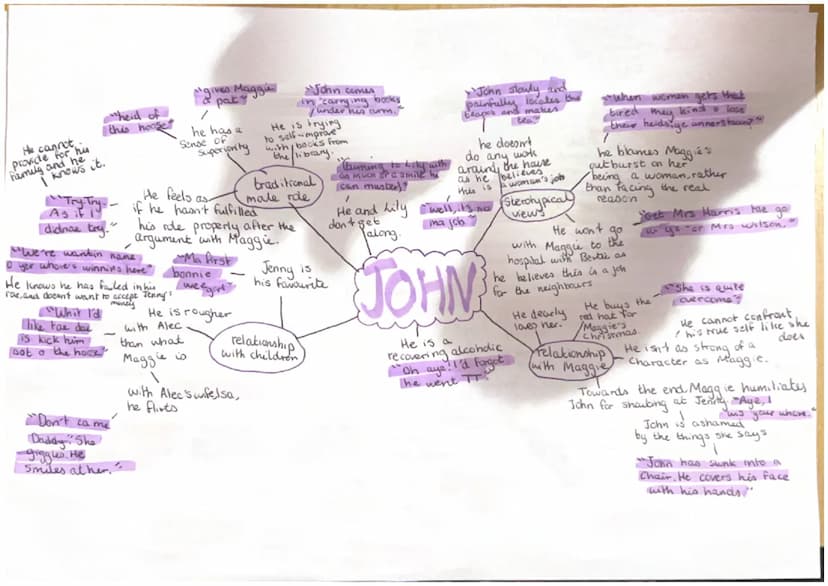 JOHN
traditional
male role
he has a
sense of
superiority
"gives Maggie
a pat"
"heid of
this hoose"
He is trying
to self-improve
with books from
the library.
"John comes
in carrying books
under his arm."
He feels as
if he hasn't fulfilled
his role properly after the
argument with Maggie.
He cannot
provide for his
family and he
knows it.
"Try. Try.
As if I
didnae try."
He and Lily
don't get
along.
as much of a smile he
can muster)"
sterotypical
views
he doesn't
do any work
around the house
as he believes
this is a woman's job
"John slowly and
painfully locates the
teapot and makes
tea."
"well, it's no
ma job"
he blames Maggie's
outburst on her
being a woman, rather
than facing the real
reason
"When women gets that
tired they kind o loss
their heids, ye unnerstaun?"
He won't go
with Maggie to the
hospital with Bertie as
he believes this is a job
for the neighbours
"Get Mrs Harris tae go
wi ye - or Mrs Wilson."
relationship
with children
Jenny is
his favourite
"Ma first
bonnie
wee girl"
"We're wantin nane
o yer whore's winnins here"
He knows he has failed in his
role and doesn't want to accept Jenny's
money
He is rougher
with Alec
than what
Maggie is
"Whit I'd
like tae dae
is kick him
oot o the hoose"
with Alec's wife Isa,
he flirts
"Don't ca me
Daddy." She
giggles. He
smiles at her."
He is a
recovering alcoholic
"Oh aye! I'd forgot
he went TT"
relationship
with Maggie
He dearly
loves her.
He buys the
red hat for
Maggie's
Christmas.
"She is quite
overcome"
He isn't as strong of a
character as Maggie.
He cannot confront
his true self like she
does
Towards the end, Maggie humiliates
John for shouting at Jenny
"Aye, I
wis your whore."
John is ashamed
by the things she says
"John has sunk into a
chair. He covers his face
with his hands."